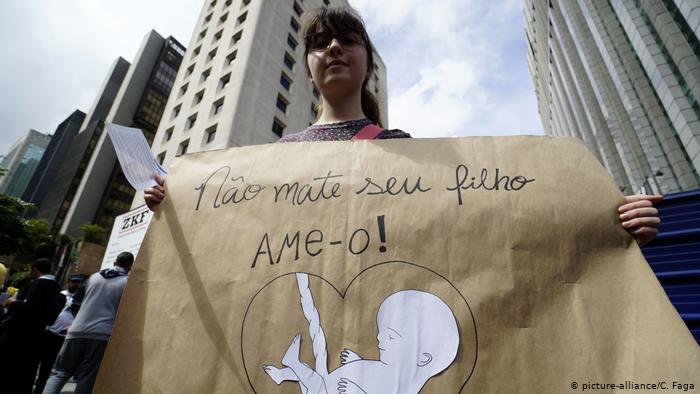 Não mate seu filho
AME-O!
ZKF
© picture-alliance/C. Faga